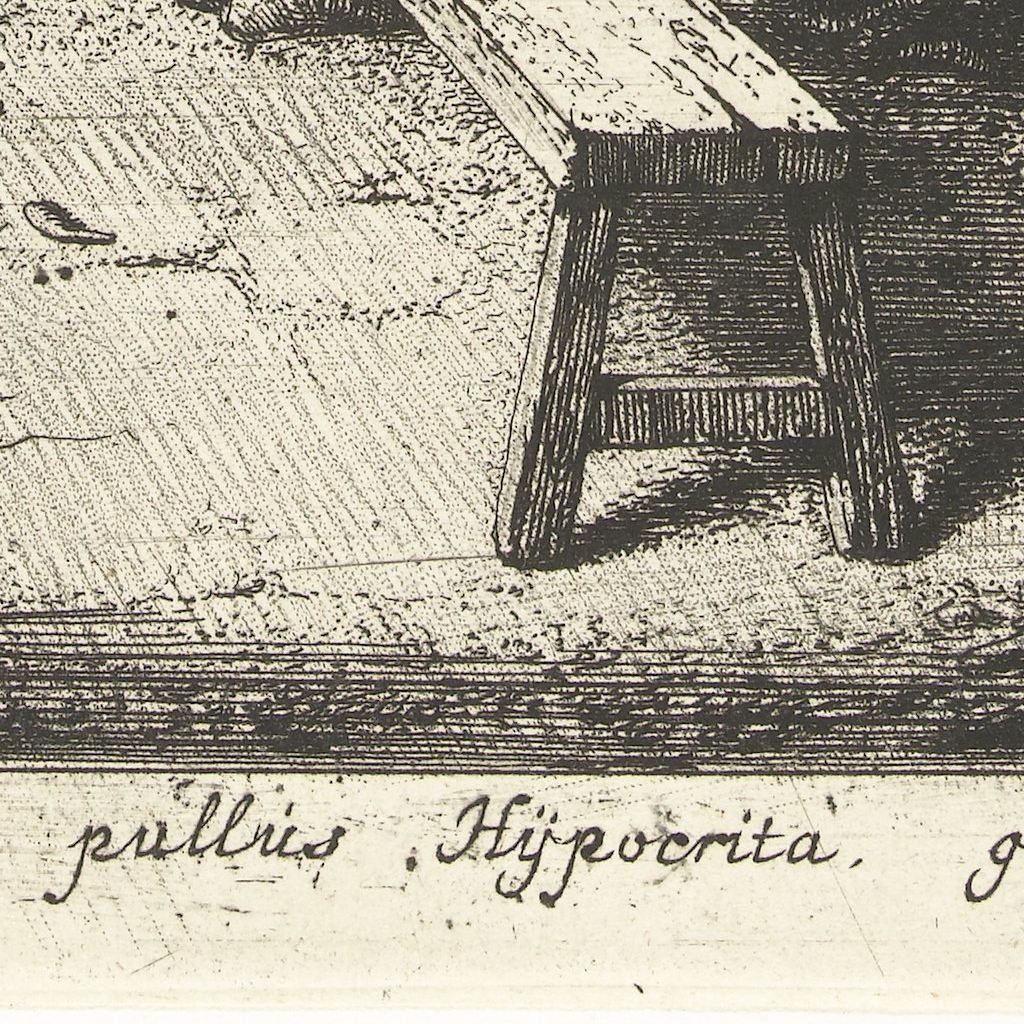 pullus . Hÿpocrita, g